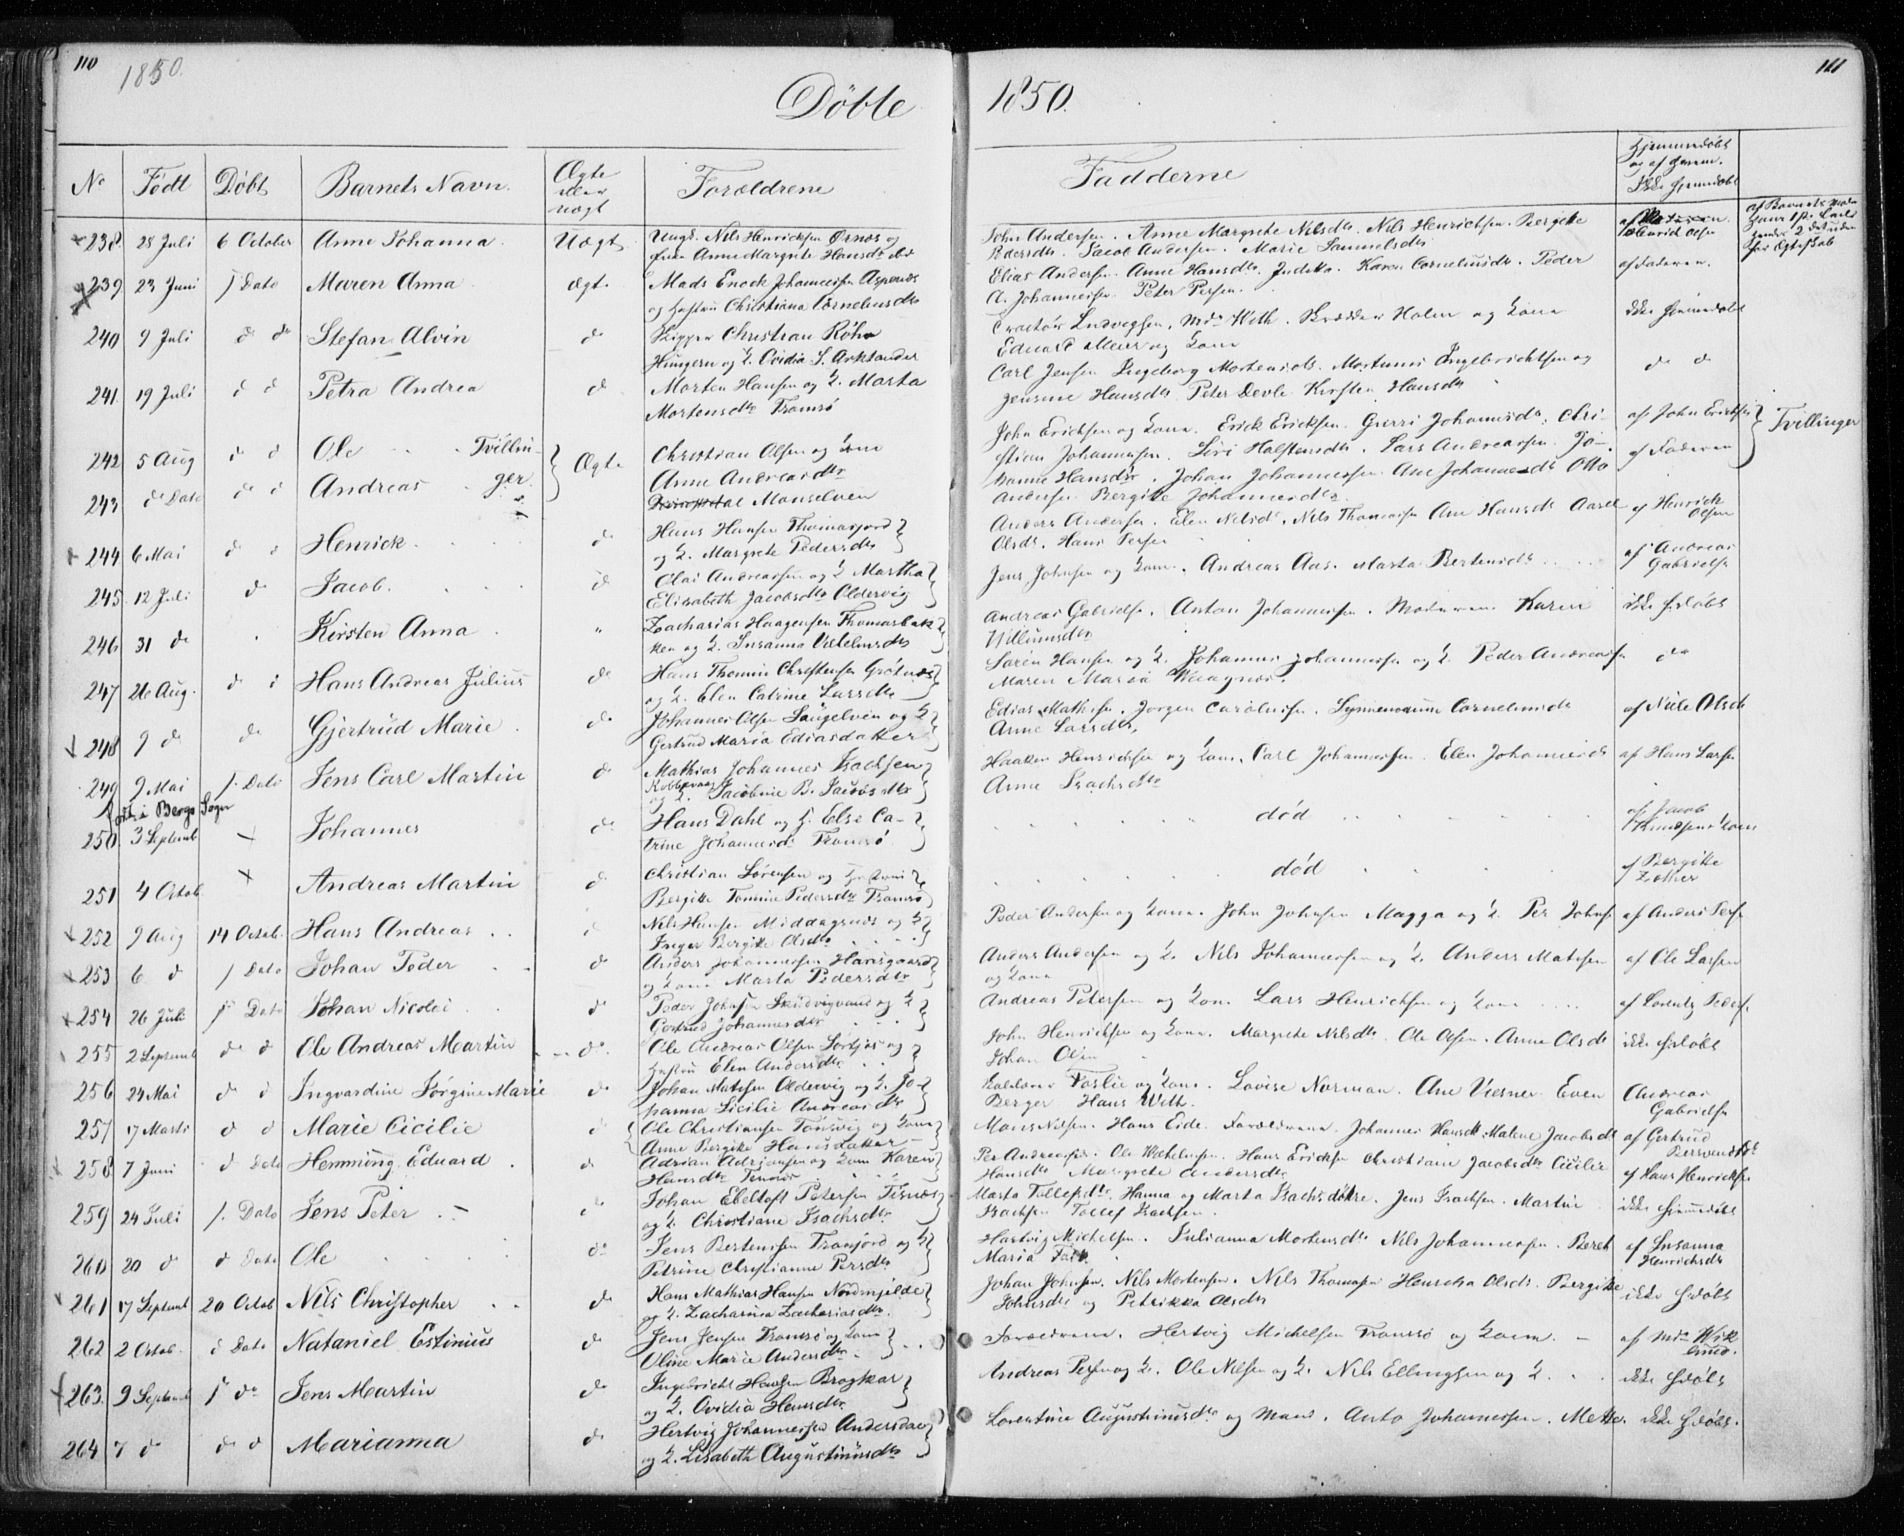 110
1850.
111
Døbte
1850.
No
Født
Døbt
Barnets Navn.
Ægte
eller
uægt
Forældrene
Fadderne
Hjemmedøbt
og af hvem.
Ikke hjemdøbt
238. 28 Juli 6 October Anne Johanna Uægt. Ungk. Nils Henrichsen Ørnes og
Pige Anne Margrete Hansdtr
John Andersen. Anne Margrete Nilsdtr. Nils Henrichsen. Bergitte
Pedersdtr. Jacob Andersen. Marie Samuelsdtr
239 23 Juni s Dato Maren Anna ægte Mads Enock Johannesen
og Hustru Christiana Cornelusdtr
Elias Andersen. Anne Hansdtr. Karen Corneliusdtr. Peder
A. Johannesen. Peter Persen.
af Faderen.
240 9 Juli d do Stefan Alvin do Skipper Christian Røhr
og H. Ovidia S.
Ludvigsen, Md. Weth. Skrædder Holm og Kone
Eduard Meier og Kone
ikke hjemmedøbt
241. 19 Juli d d Petra Andrea d Morten Hansen og H. Marta
Mortensdtr Tromsø
Carl Jensen Ingeborg Mortensdtr. Ingebrichtsen og
Jensine Hansdtr Peter Devle Kirsten Hansdtr
d d
242 5 Aug d d Ole Tvillin-
Christian Olsen og Kone
John Ericksen og Kone. Erick Ericksen. Johannesdtr. Chri-
stian Johannesen. Siri Halstensdtr. Lars Andreassen. Jo-
af John Ericksen
243 do Dato d d Andreas ger. Ægte
Anne Andreasdtr
Maaselven
hanne Hansdtr. Johan Johannesen Ane Johannesdtr Otto
Andersen Bergitte Johannesdtr.
af Faderen
Tvillinger
244 6 Mai d d Henrick d Hans Hansen Thomasjord
og H. Margrete Pedersdtr
Anders Andersen. Elen Nilsdtr. Nils Thomasen Ane Hansdtr
Olsdtr. Hans Persen
af Henrick
Olsen
245. 12 Juli d Jacob. d Olai Andreassen og H Martha
Elisabeth Jacobsdtr Oldervig
Jens Johnsen og Kone. Andreas Aas. Marta Bertensdtr
af Andreas
Gabrielsen
246 31 do Kirsten Anna " Zacharias Haagensen Thomasbak-
ken og H. Susanna Villumsdtr
Andreas Gabrielsen. Anton Johannesen. Moderen. Karen
Willumsdtr
ikke hjdøbt
247 26 Aug. d d Hans Andreas Julius do Hans Thomin Christensen Grøtnæs
og H. Elen Catrine Larsdtr
Søren Hansen og H. Johannes Johannesen og H. Peder Andreasen
Maren Maria
do
248 9 d do Gjertrud Marie do Johannes Olsen Saugelven og H
Gertrud Maria Ediasdatter
Edias Mathisen. Jørgen Carolusen. Corneliusdtr
Anne Larsdtr.
af Nille Olsdtr
249 9 Mai s. Dato Jens Carl Martin d Mathias Johannes Isachsen
og H. Jacobine B. Jacobsdtr
Haaken Henrichsen og Kone. Carl Johannesen. Elen Johannesdtr
Anne Isachsdtr
af Hans Larsen
i Bergs Sogn
250 3 Septemb x Johannes do Hans Dahl og H. Else Ca-
trine Johannesdtr Tromsø
død
af Jacob
Knudsens Kone
251 4 Octob x Andreas Martin d Christian Sørensen og Hustru
Bergitte Tomine Pedersdtr Tromsø
død
af Bergitte
252 9 Aug 14 Octob. Hans Andreas d Nils Hansen Middagsnæs og H
Inger Bergitte Olsdtr
Peder Andersen og Kone. John Johnsen Magga og H. Per Johns.
af Anders Pers.
253 6 d s Dato Johan Peder d Anders Johannesen
og Kone Marta Pedersdtr
Anders Andersen og H. Nils Johannesen og H. Anders Mathisen
og Kone
af Ole Larsen
254 26 Juli s Dato Johan Nicolai d Peder Johnsen og H
Gertrud Johannesdtr
Andreas Petersen og Kone. Lars Henrichsen og Kone
af Lorentz Peders.
255 2 Septemb do d Ole Andreas Martin do. Ole Andreas Olsen og
Hustru Elen Andersdtr
John Henrichsen og Kone. Margrete Nilsdtr. Ole Olsen. Anne Olsdtr
Johan Olsen
ikke hjdøbt
256 24 Mai d d Ingvardine Jørgine Marie d Johan Matisen Oldervig og H. Jo-
hanna Sicilie Andreasdtr
Foslie og Kone. Lovise Norman. Ane Viesner Even
Berger Hans Weth.
Andreas
Gabrielsen
257 17 Marts d d Marie Cicilie d Ole Christiansen og Kone
Anne Bergitte Hansdatter
Mons Nilsen. Hans Eide. Forældrene. Johannes Hansdtr. Malene Jacobsdtr
af Gertrud
258 7 Juni d Dato Hemming Eduard d Adrian Adriansen og Kone Karen
Hansdtr
Per Andreasen. Ole Wilhelmsen. Hans Ericksen Christiane Jacobsdtr Cicilie
Hansdtr Margrete Andersdtr
af Hans Henricksen
259 24 Juli s. Dato Jens Peter d Johan Ebeltoft Petersen Tisnæs
og H. Christiane Isachsdtr
Marta Tollefsdtr. Hanna og Marta Isachsdøtre. Jens Isachsen. Martin
Isachsen Tollef Isachsen.
ikke hjemmedøbt
260 20 d d Dato Ole do Jens Bertensen Tromjord og H
Petrine Christianne Persdtr
Hartvig Michelsen. Julianna Mortensdtr Nils Johannesen. Beret
Maria Falk
af Susanna
Henrichsdtr
261 17 Septemb 20 Octob Nils Christopher do Hans Mathias Hansen Nordmjelde
og H. Zacharina Zachariasdtr.
Johan Johnsen. Nils Mortensen. Nils Thomasen Olsdtr. Bergitte
Johnsdtr og Petrikka Olsdtr
ikke hjdøbt
262 2 Octob. d Dato Nataniel Estinius do Jens Jensen Tromsø og Kone
Oline Marie Andersdtr.
Forældrene. Hertvig Michelsen Tromsø og Kone.
af Md. Wik-
lund.
263. 9 Septemb s do Jens Martin do Ingebricht Hansen
og H. Ovidia Hansdtr.
Andreas Persen og H. Ole Nilsen og H. Nils Ellingsen og H
ikke hjdøbt
264 7 d do d Marianna do Hertvig Johannesen Andersdal
og H. Lisabeth Augustinusdtr
Lorentine Augustinusdtr og Mand. Anto Johannesen. Mette
ikke hjdøbt.